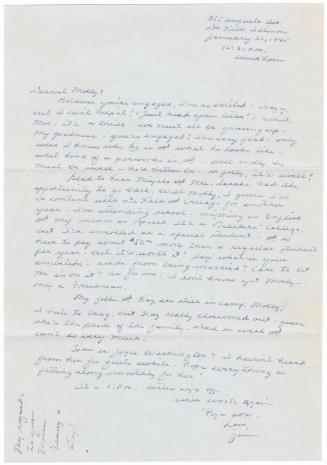 De Kalb, Illinois
January 22, 1945
12:30 P.M.
Dearest Molly!
Because you're engaged, I'm so excited - crazy,
but I can't help it! I just read your letter! I
Mol - it's a thrill - we must all be growing up.
My goodness - you're engaged! I'm very glad - only
wish I knew who he is what he looks like -
what kind of a person he is. - well Molly, he
must be swell - he's better be - oh golly, it's swell!
Glad to hear had the
opportunity to go back. Well Molly, I guess I'll
be content with De Kalb and Chicago for another
year. I'm attending school. Majoring in English
and my minor is Speech. It's a Teachers' College,
but I'm enrolled as a special student. I
have to pay about more than a regular student
per year - but it's worth it! Say, what is your
ambition - aside from being married? Care to let
me in on it? As for me - I don't know yet Molly -
only a Freshman.
My folks and Kay are still in camp. Molly,
I hate to brag, but Kay really blossomed out - guess
she's the pride of the family. Dad is weak and
can't do very much.
Washington? I haven't heard
from her for quite awhile. Hope everything is
getting along smoothly for her!
It's 1 P.M.
write again
Bye now.
Love,